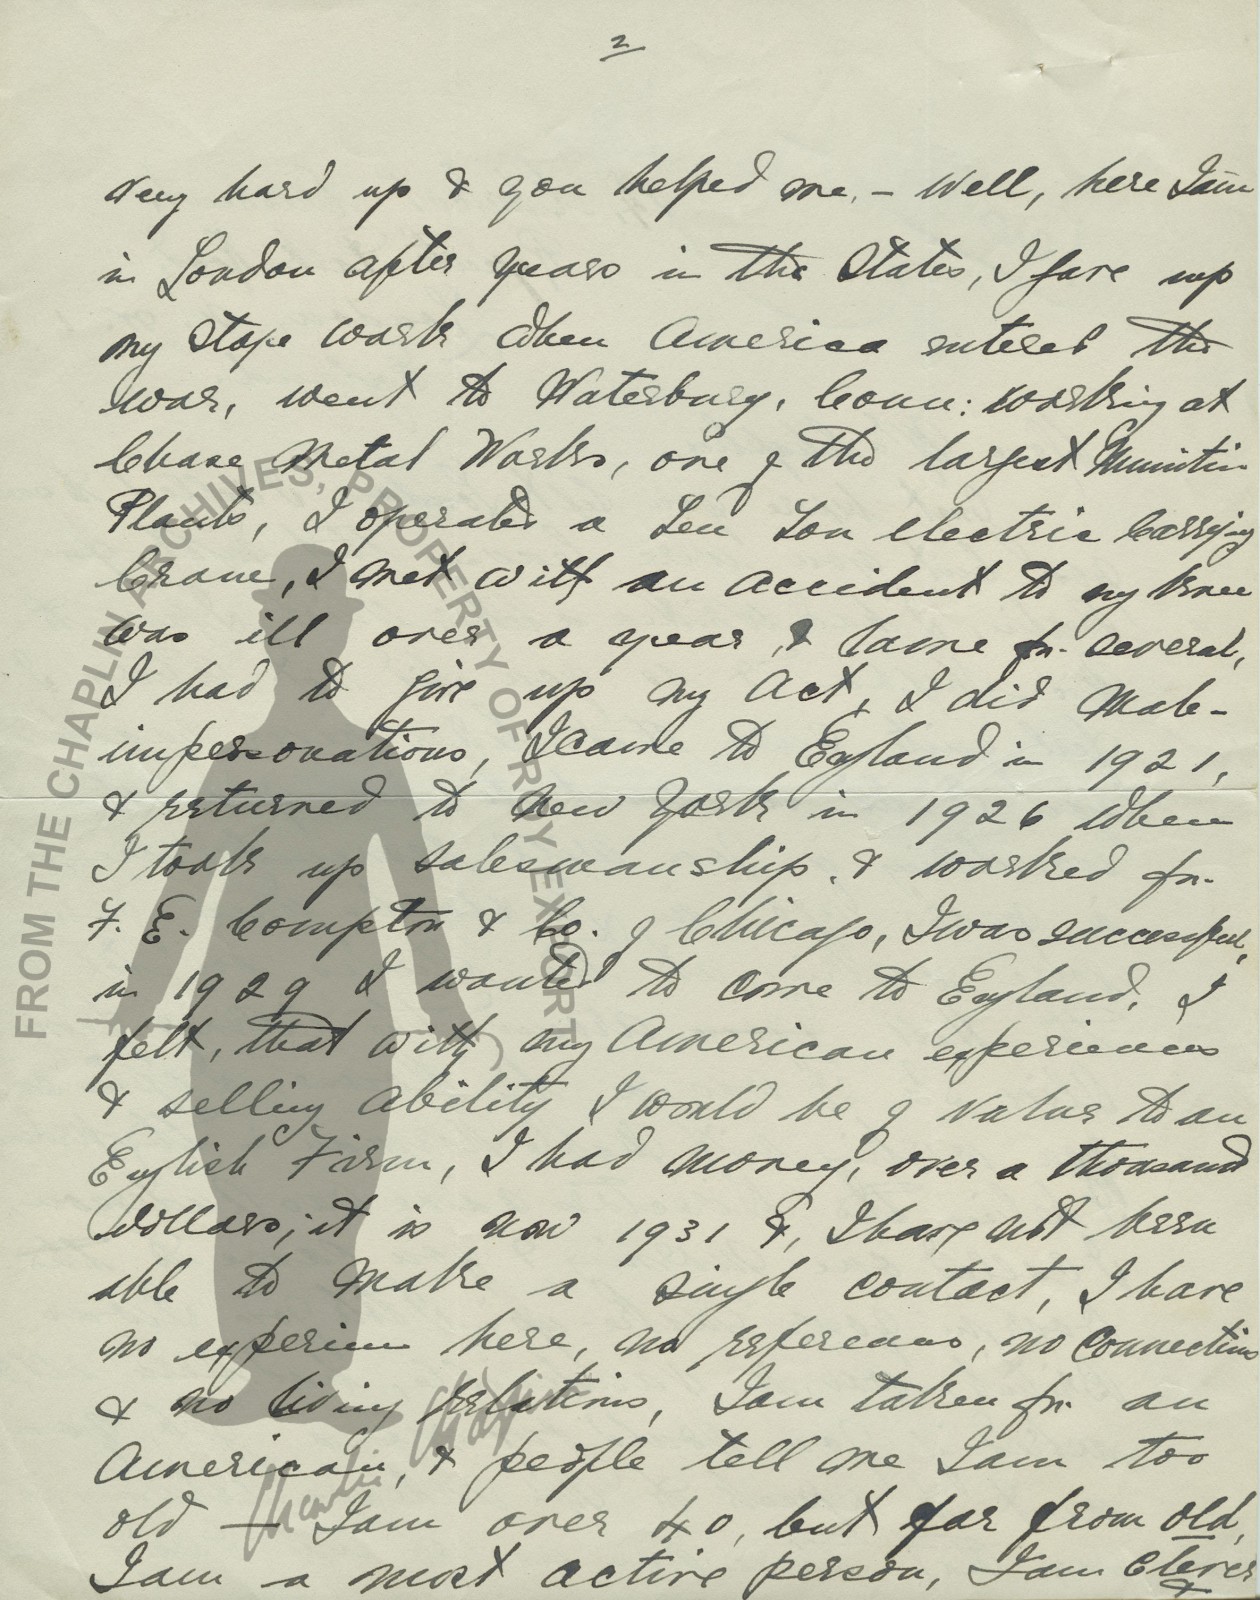 2
very hard up & you helped me, - Well, here I am
in London after years in the States, I gave up
my Stage work when America entered the
war, went to Waterbury, Conn: working at
Chase Metal Works, one of the largest Munition
Plants, I operated a Ten Ton electric Carrying
Crane, I met with an accident to my knee
was ill over a year, & lame for several,
I had to give up my Act, I did Male-
impersonations, I came to England in 1921,
& returned to New York in 1926 when
I took up salesmanship, & worked for
F. E. Compton & Co. of Chicago, I was successful,
in 1929 I wanted to come to England, I
felt, that with my American experiences
& selling ability I would be of value to an
English Firm, I had money, over a thousand
dollars; it is now 1931 &, I have not been
able to make a single contact, I have
no experience here, no references, no connections
& no living relations, I am taken for an
American, & people tell me I am too
old — I am over 40, but far from old,
I am a most active person, I am clever
&
FROM THE CHAPLIN ARCHIVES, PROPERTY OF ROY EXPORT
Charlie Chaplin